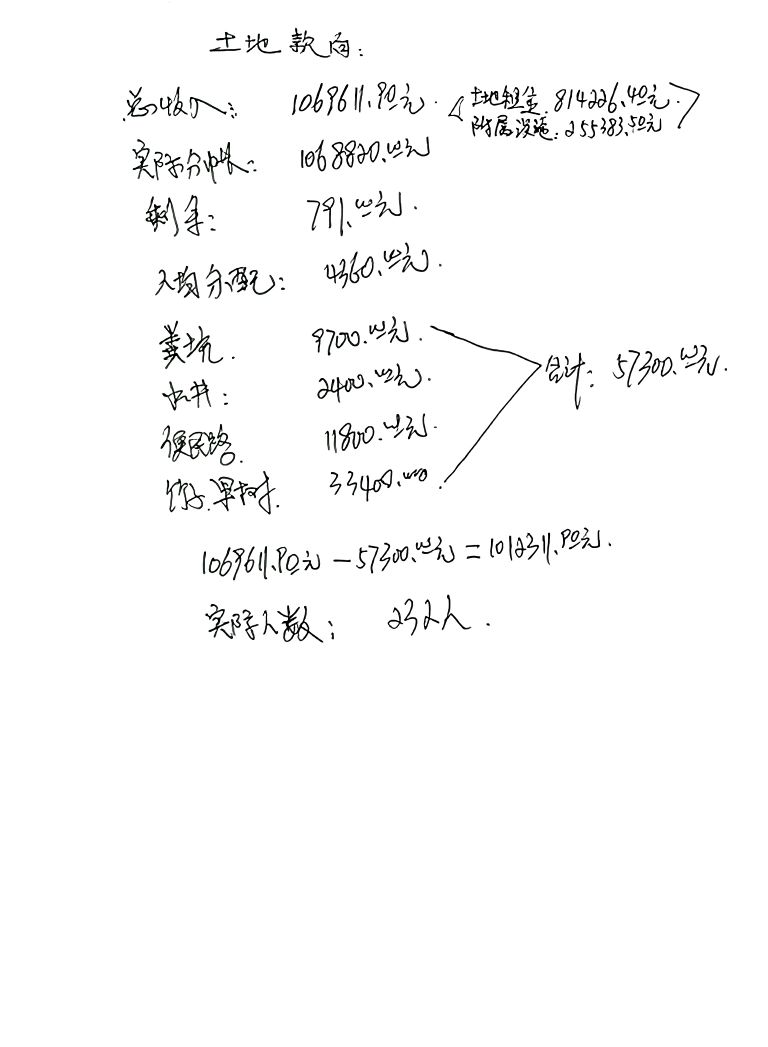 土地款肉:
总收入: 1069611.90元. <土地租金:814226.40元.>
附属设施:255383.50元
实际分帐: 1068820.00元
剩余: 791.00元.
人均分配: 4360.00元.
粪坑. 9700.00元.
水井: 2400.00元.
便民路. 11800.00元.
竹子.果树. 33400.00.
合计: 57300.00元.
1069611.90元-57300.00元=1012311.90元.
实际人数: 232人.